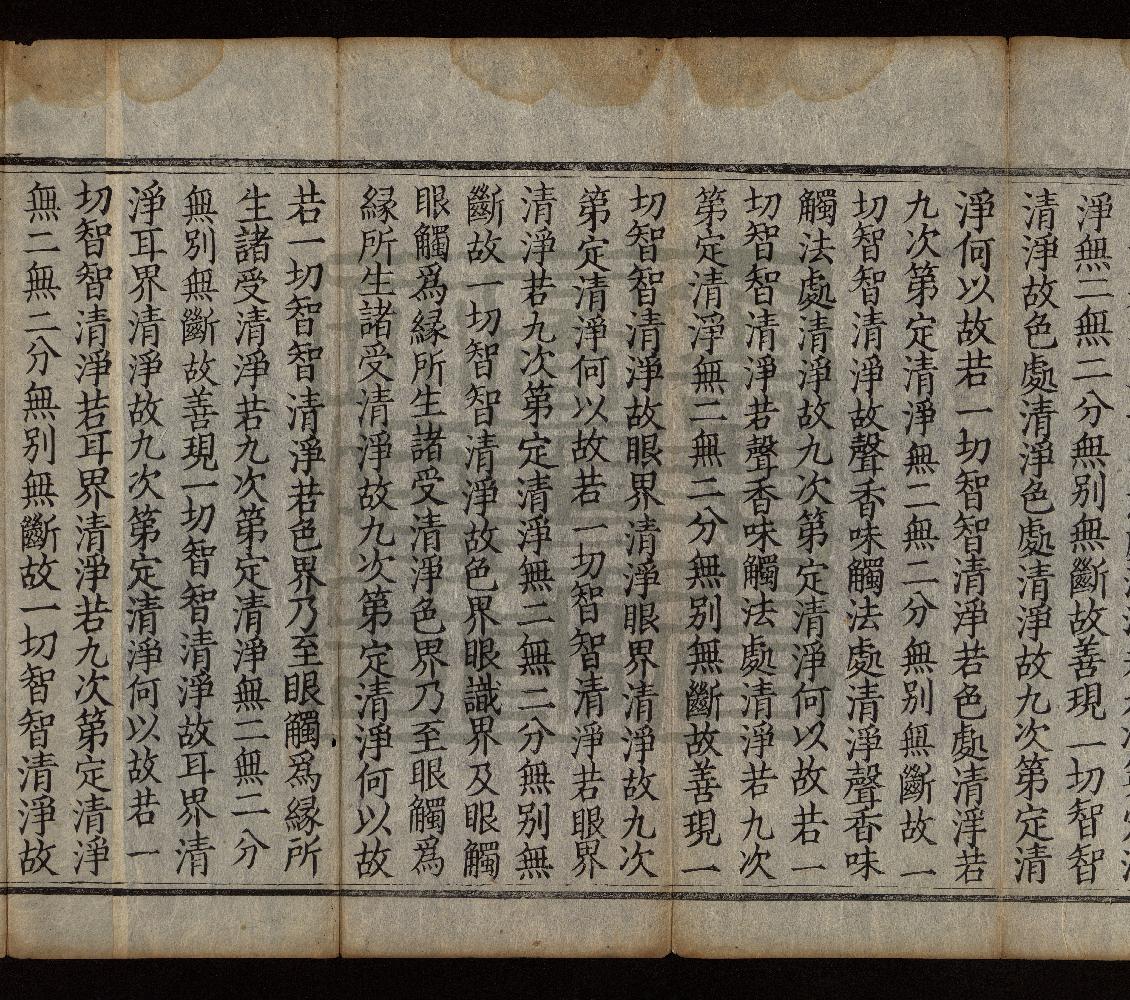 淨無二無二分無別無斷故善現一切智智
清淨故色處清淨色處清淨故九次第定清
淨何以故若一切智智清淨若色處清淨若
九次第定清淨無二無二分無別無斷故一
切智智清淨故聲香味觸法處清淨聲香味
觸法處清淨故九次第定清淨何以故若一
切智智清淨若聲香味觸法處清淨若九次
第定清淨無二無二分無別無斷故善現一
切智智清淨故眼界清淨眼界清淨故九次
第定清淨何以故若一切智智清淨若眼界
清淨若九次第定清淨無二無二分無別無
斷故一切智智清淨故色界眼識界及眼觸
眼觸爲緣所生諸受清淨色界乃至眼觸爲
緣所生諸受清淨故九次第定清淨何以故
若一切智智清淨若色界乃至眼觸爲緣所
生諸受清淨若九次第定清淨無二無二分
無別無斷故善現一切智智清淨故耳界清
淨耳界清淨故九次第定清淨何以故若一
切智智清淨若耳界清淨若九次第定清淨
無二無二分無別無斷故一切智智清淨故